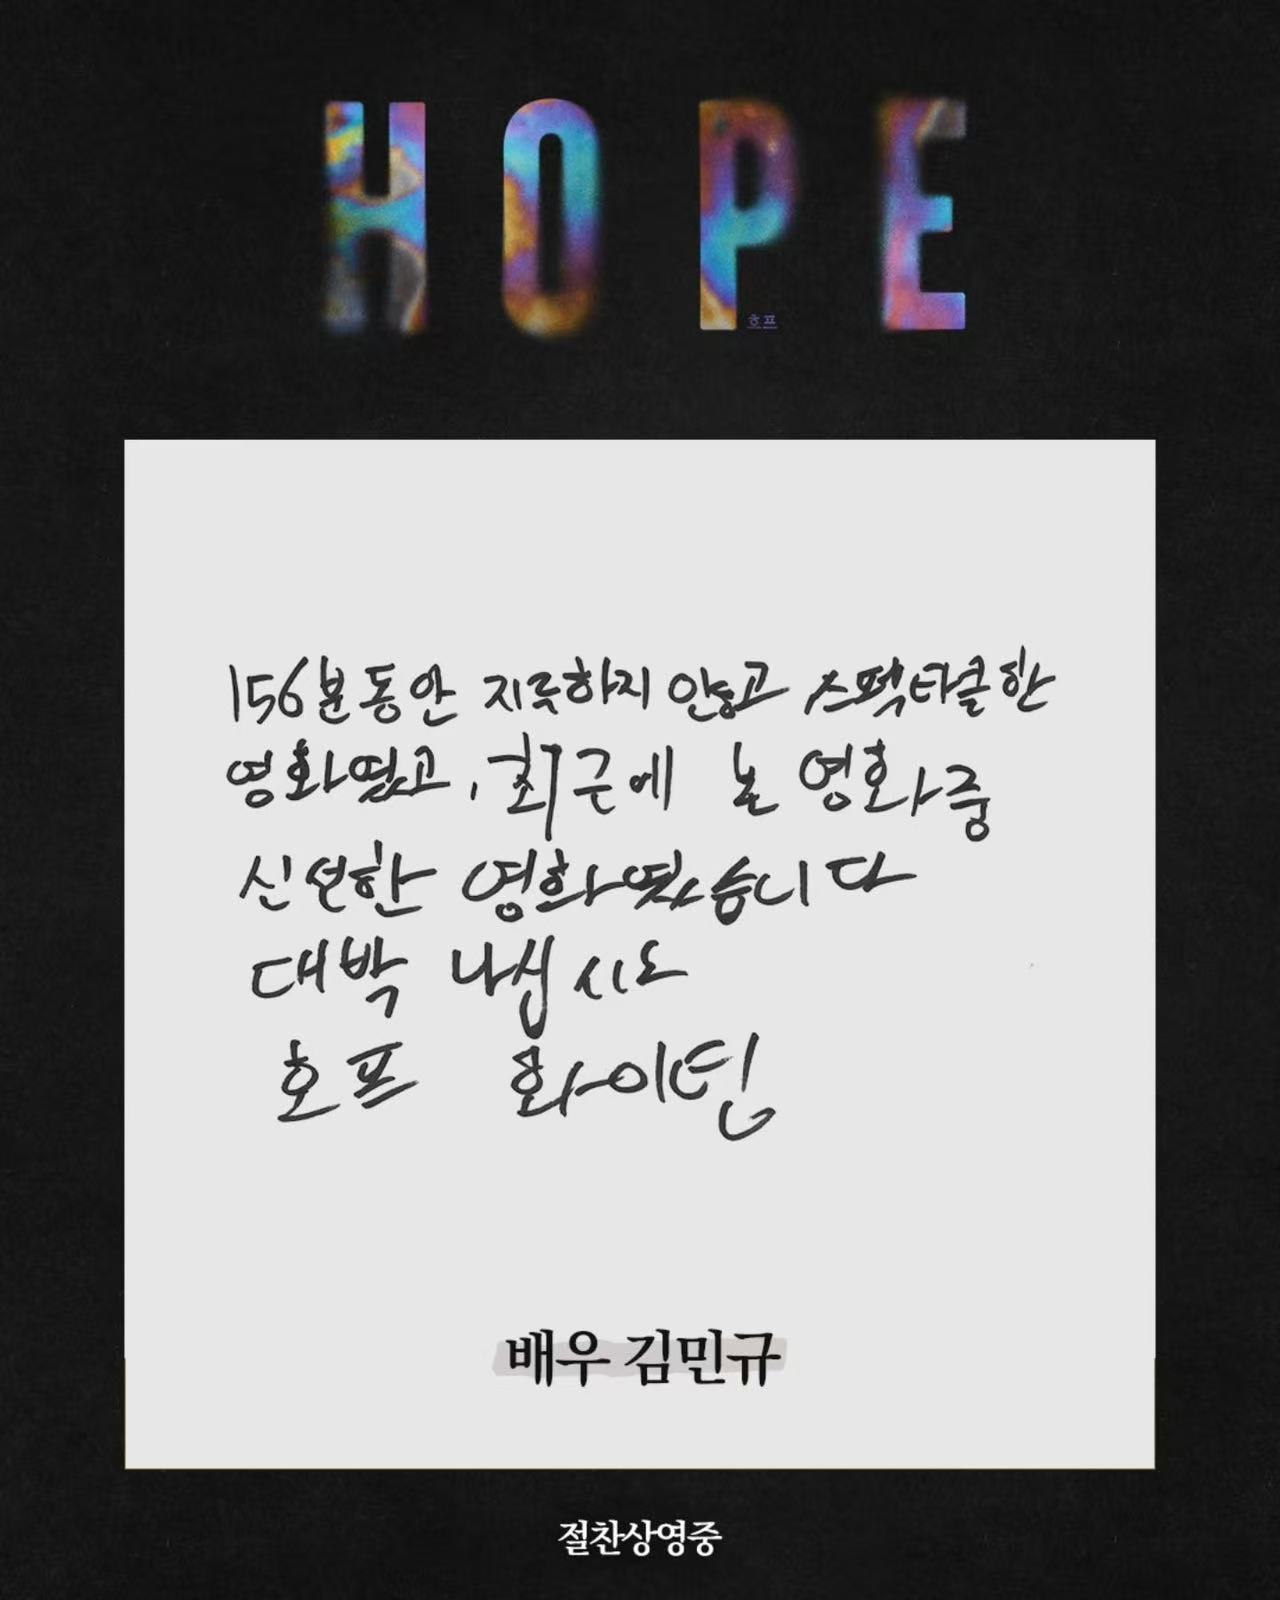 HOPE
호프
156분동안 지루하지 않고 스펙타클한
영화였고, 최근에 본 영화중
신선한 영화였습니다
대박 나십시오
호프 화이팅
배우 김민규
절찬상영중